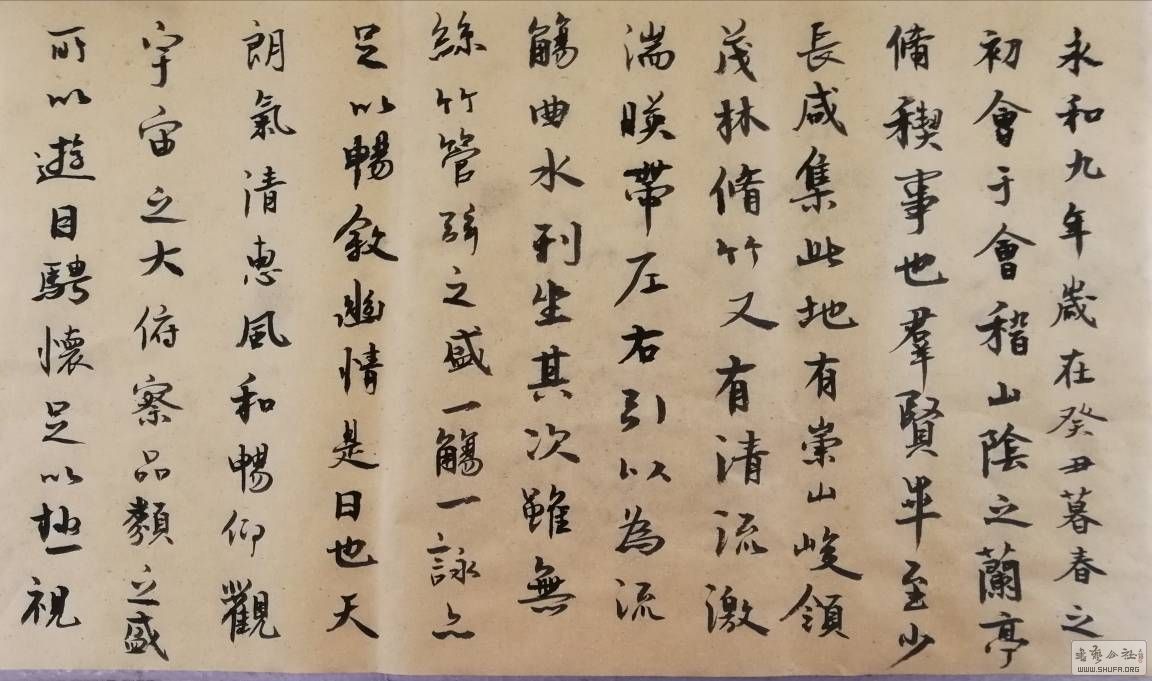 永和九年歲在癸丑暮春之
初會于會稽山陰之蘭亭
脩稧事也羣賢畢至少
長咸集此地有崇山峻領
茂林脩竹又有清流激
湍暎帶左右引以為流
觴曲水列坐其次雖無
絲竹管弦之盛一觴一詠亦
足以暢敘幽情是日也天
朗氣清惠風和暢仰觀
宇宙之大俯察品類之盛
所以遊目騁懷足以極視
書藝公社
WWW.SHUFA.ORG